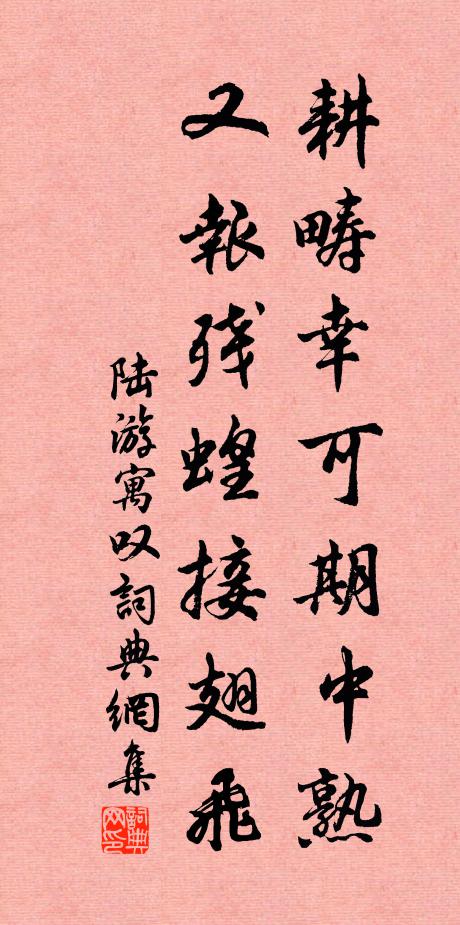 耕畴幸可期中熟
又報残蝗接翅飛
陆游寓叹詞典網集
詞典
网印